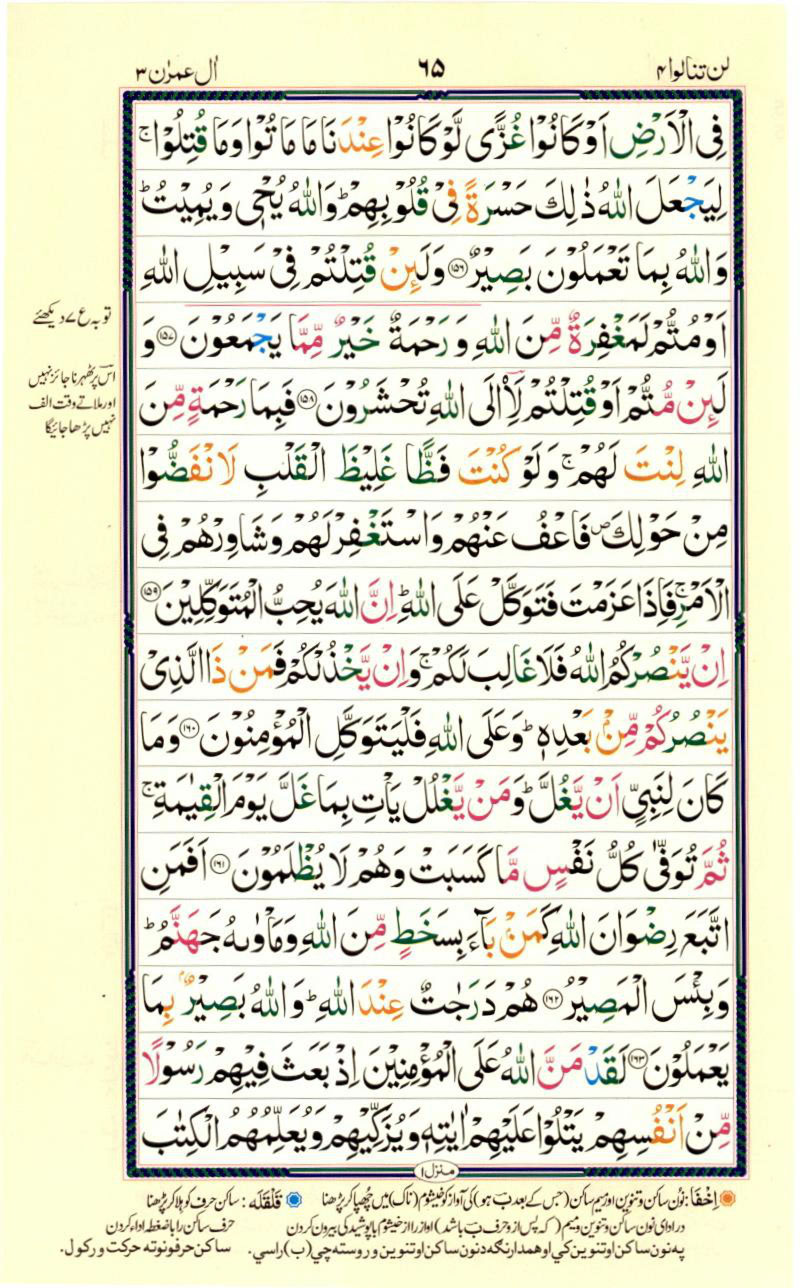 لن تنالوا ۴ ۶۵ اٰل عمرٰن ۳
فِى الْاَرْضِ اَوْ كَانُوْا غُزًّى لَّوْ كَانُوْا عِنْدَنَا مَا مَاتُوْا وَمَا قُتِلُوْا ۚ
لِيَجْعَلَ اللّٰهُ ذٰلِكَ حَسْرَةً فِىْ قُلُوْبِهِمْ ؕ وَاللّٰهُ يُحْىٖ وَيُمِيْتُ ؕ
وَاللّٰهُ بِمَا تَعْمَلُوْنَ بَصِيْرٌ ﴿۱۵۶﴾ وَلَىِٕنْ قُتِلْتُمْ فِىْ سَبِيْلِ اللّٰهِ
اَوْ مُتُّمْ لَمَغْفِرَةٌ مِّنَ اللّٰهِ وَرَحْمَةٌ خَيْرٌ مِّمَّا يَجْمَعُوْنَ ﴿۱۵۷﴾ وَ
لَىِٕنْ مُّتُّمْ اَوْ قُتِلْتُمْ لَاۡاِلَى اللّٰهِ تُحْشَرُوْنَ ﴿۱۵۸﴾ فَبِمَا رَحْمَةٍ مِّنَ
اللّٰهِ لِنْتَ لَهُمْ ۚ وَلَوْ كُنْتَ فَظًّا غَلِيْظَ الْقَلْبِ لَانْفَضُّوْا
مِنْ حَوْلِكَ ۖ فَاعْفُ عَنْهُمْ وَاسْتَغْفِرْ لَهُمْ وَشَاوِرْهُمْ فِى
الْاَمْرِ ۚ فَاِذَا عَزَمْتَ فَتَوَكَّلْ عَلَى اللّٰهِ ؕ اِنَّ اللّٰهَ يُحِبُّ الْمُتَوَكِّلِيْنَ ﴿۱۵۹﴾
اِنْ يَّنْصُرْكُمُ اللّٰهُ فَلَا غَالِبَ لَكُمْ ۚ وَاِنْ يَّخْذُلْكُمْ فَمَنْ ذَا الَّذِىْ
يَنْصُرُكُمْ مِّنْۢ بَعْدِهٖ ؕ وَعَلَى اللّٰهِ فَلْيَتَوَكَّلِ الْمُؤْمِنُوْنَ ﴿۱۶۰﴾ وَمَا
كَانَ لِنَبِىٍّ اَنْ يَّغُلَّ ؕ وَمَنْ يَّغْلُلْ يَاْتِ بِمَا غَلَّ يَوْمَ الْقِيٰمَةِ ۚ
ثُمَّ تُوَفّٰى كُلُّ نَفْسٍ مَّا كَسَبَتْ وَهُمْ لَا يُظْلَمُوْنَ ﴿۱۶۱﴾ اَفَمَنِ
اتَّبَعَ رِضْوَانَ اللّٰهِ كَمَنْۢ بَآءَ بِسَخَطٍ مِّنَ اللّٰهِ وَمَاْوٰىهُ جَهَنَّمُ ؕ
وَبِئْسَ الْمَصِيْرُ ﴿۱۶۲﴾ هُمْ دَرَجٰتٌ عِنْدَ اللّٰهِ ؕ وَاللّٰهُ بَصِيْرٌۢ بِمَا
يَعْمَلُوْنَ ﴿۱۶۳﴾ لَقَدْ مَنَّ اللّٰهُ عَلَى الْمُؤْمِنِيْنَ اِذْ بَعَثَ فِيْهِمْ رَسُوْلًا
مِّنْ اَنْفُسِهِمْ يَتْلُوْا عَلَيْهِمْ اٰيٰتِهٖ وَيُزَكِّيْهِمْ وَيُعَلِّمُهُمُ الْكِتٰبَ
منزل ۱
توبہ ع ۷ دیکھئے
اس پر ٹھہرنا جائز نہیں
اور ملاتے وقت الف
نہیں پڑھا جائیگا
اِخْفَا: نون ساکن و تنوین اور میم ساکن (جس کے بعد ب ہو) کی آواز کو خیشوم (ناک) میں چھپا کر پڑھنا قَلْقَلَہ: ساکن حرف کو ہلا کر پڑھنا
در ادای نون ساکن و تنوین و میم (که پس از و حرف ب باشد) آواز را از خیشوم با پوشیدگی بیرون کردن حرف ساکن را با ضغطه اداء کردن
په نون ساکن او تنوین کي او همدارنګه د نون ساکن او تنوین و روسته چي (ب) راسي. ساکن حرفونو ته حرکت ورکول.